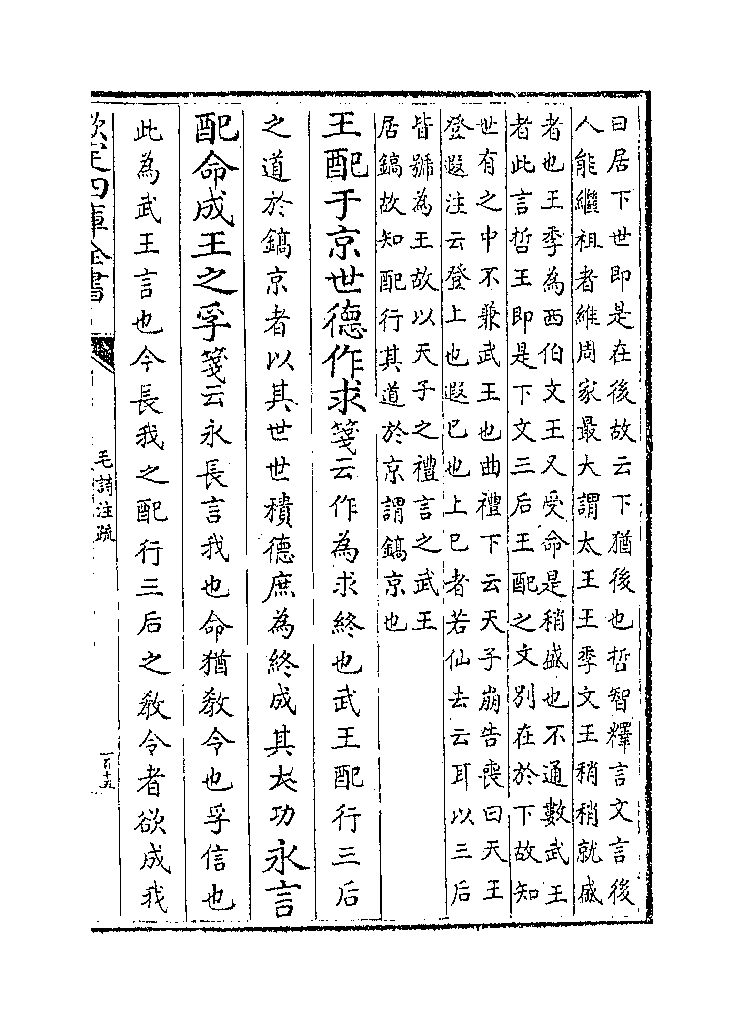 曰居下世即是在後故云下猶後也哲智釋言文言後
人能繼祖者維周家最大謂太王王季文王稍稍就盛
者也王季為西伯文王又受命是稍盛也不通數武王
者此言哲王即是下文三后王配之文別在於下故知
世有之中不兼武王也曲禮下云天子崩告喪曰天王
登遐注云登上也遐巳也上巳者若仙去云耳以三后
皆號為王故以天子之禮言之武王
居鎬故知配行其道於京謂鎬京也
王配于京世德作求箋云作為求終也武王配行三后
之道於鎬京者以其世世積德庶為終成其大功永言
配命成王之孚箋云永長言我也命猶敎令也孚信也
此為武王言也今長我之配行三后之敎令者欲成我
欽定四庫全書
毛詩注疏
一百十五